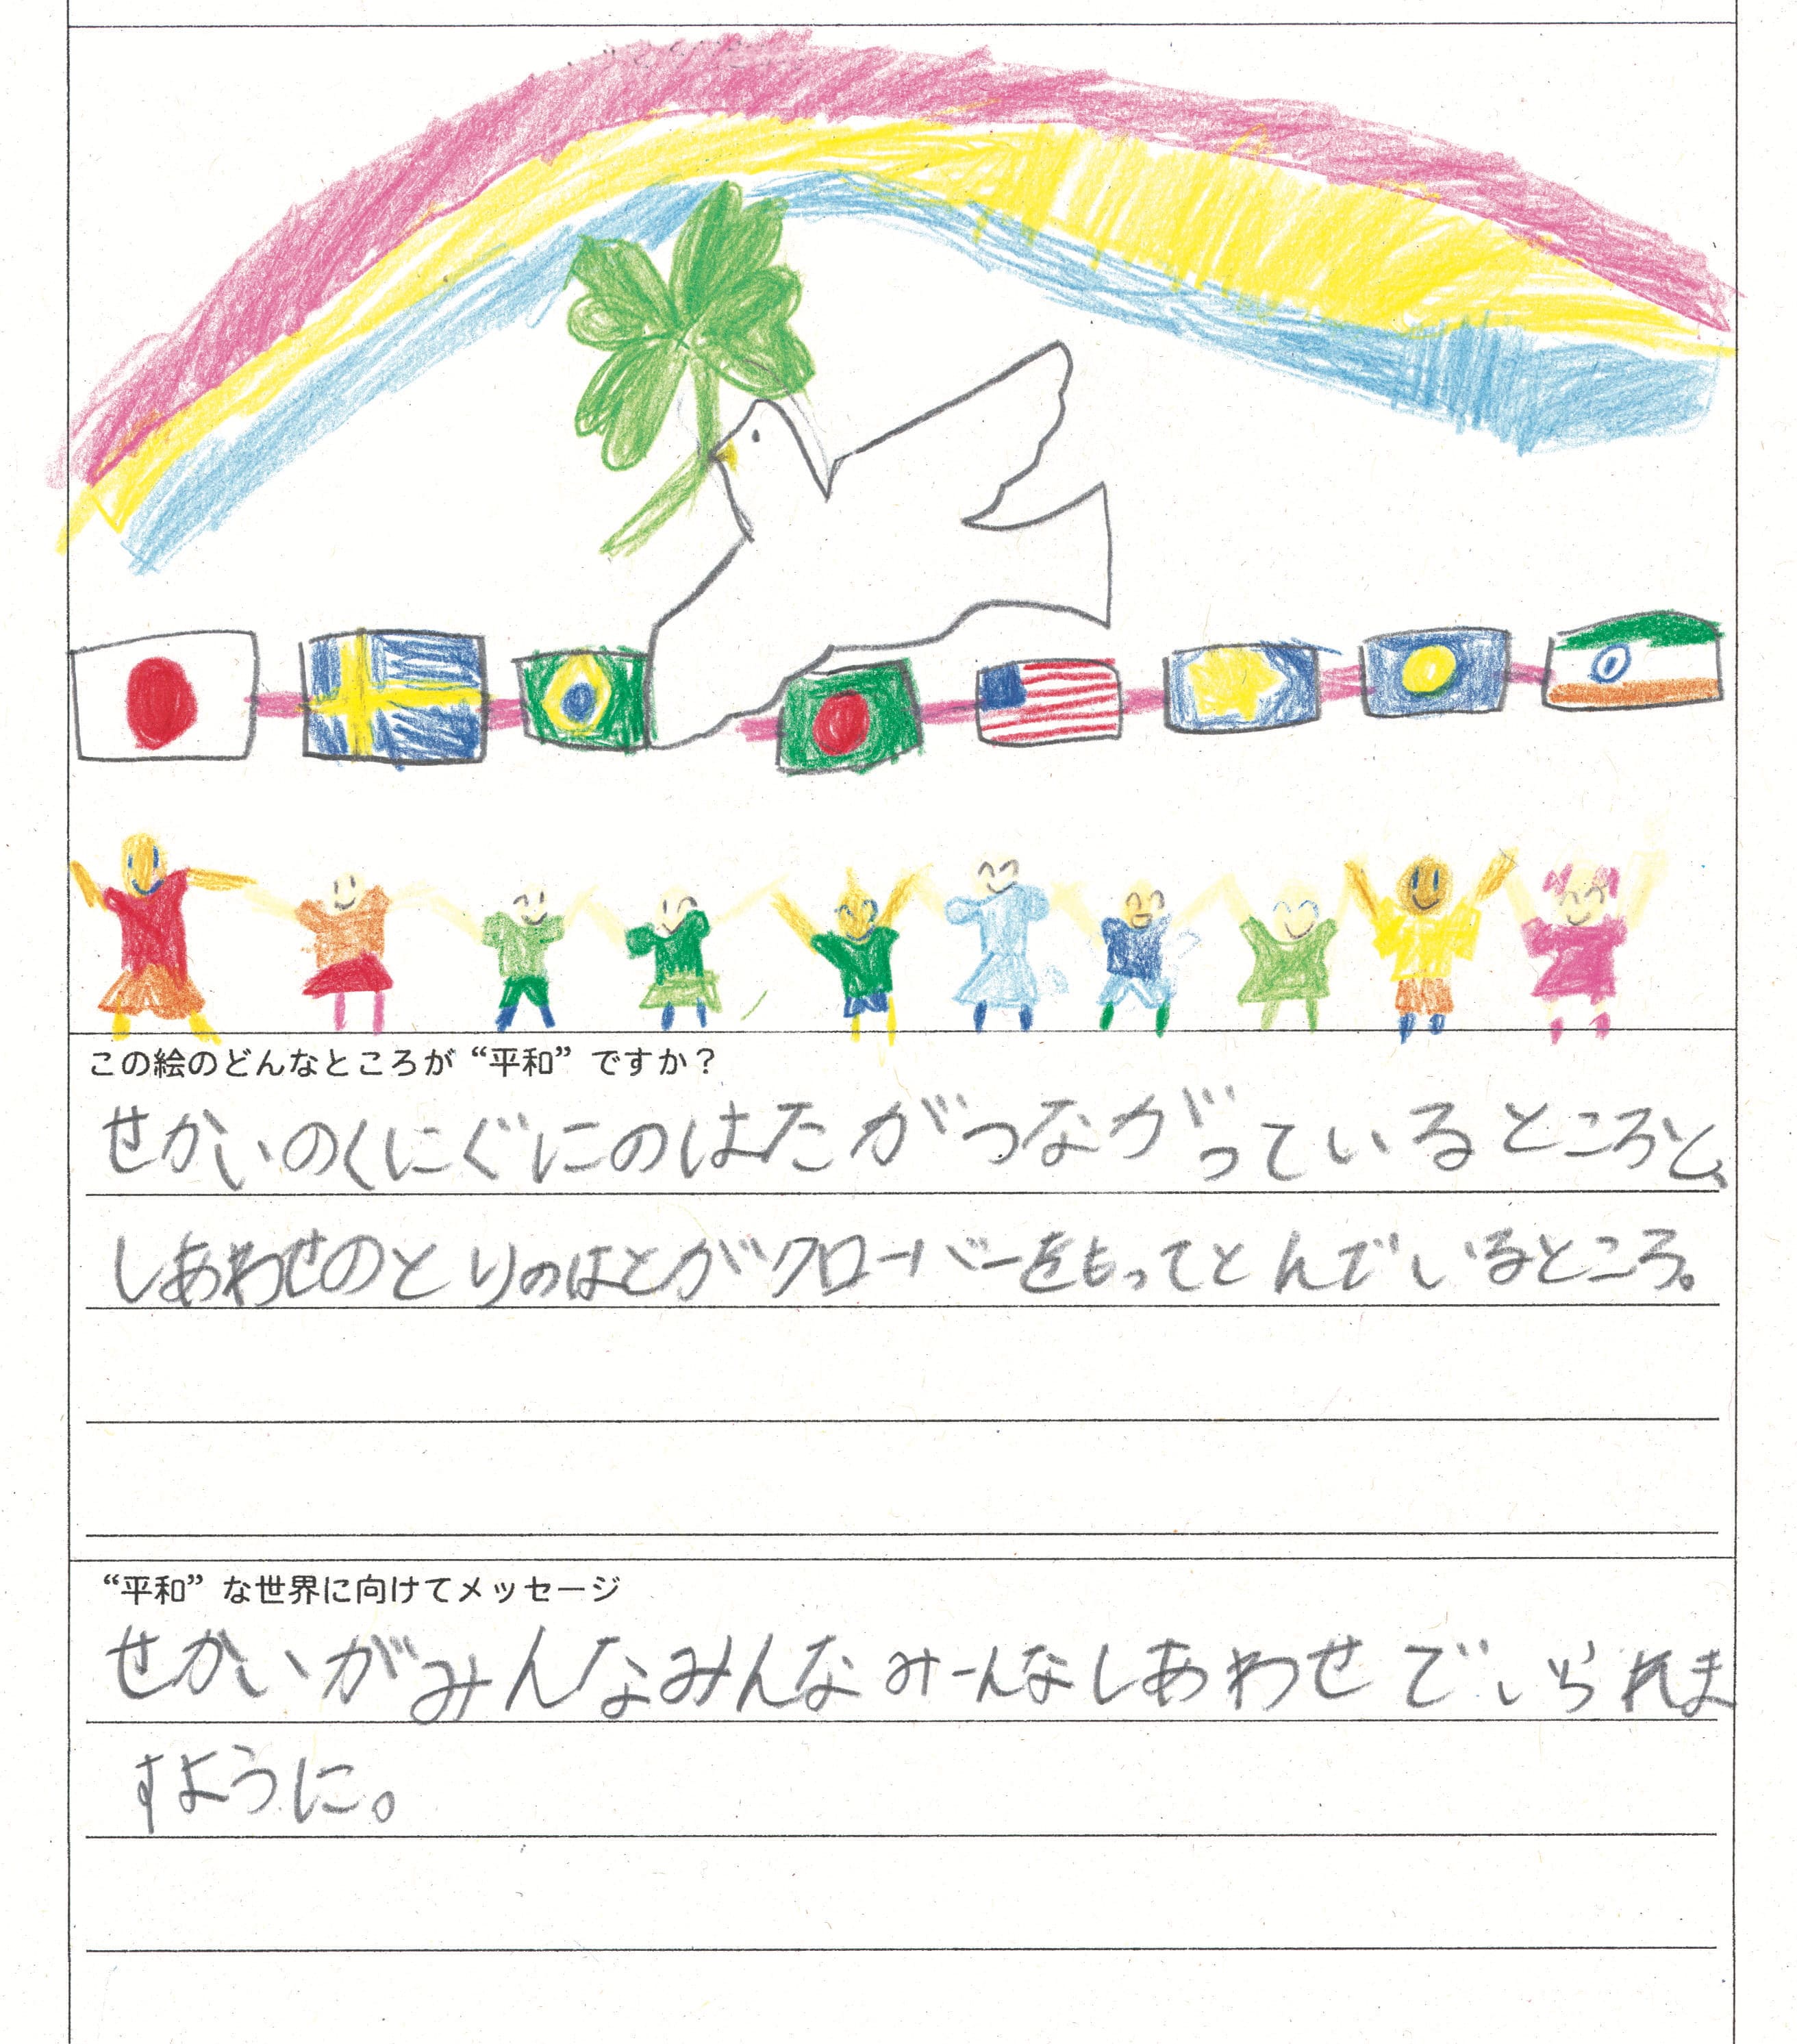 この絵のどんなところが“平和”ですか？
せかいのくにぐにのはたがつながっているところと、
しあわせのとりのはとがクローバーをもってとんでいるところ。
“平和”な世界に向けてメッセージ
せかいがみんなみんなみーんなしあわせでいられま
すように。